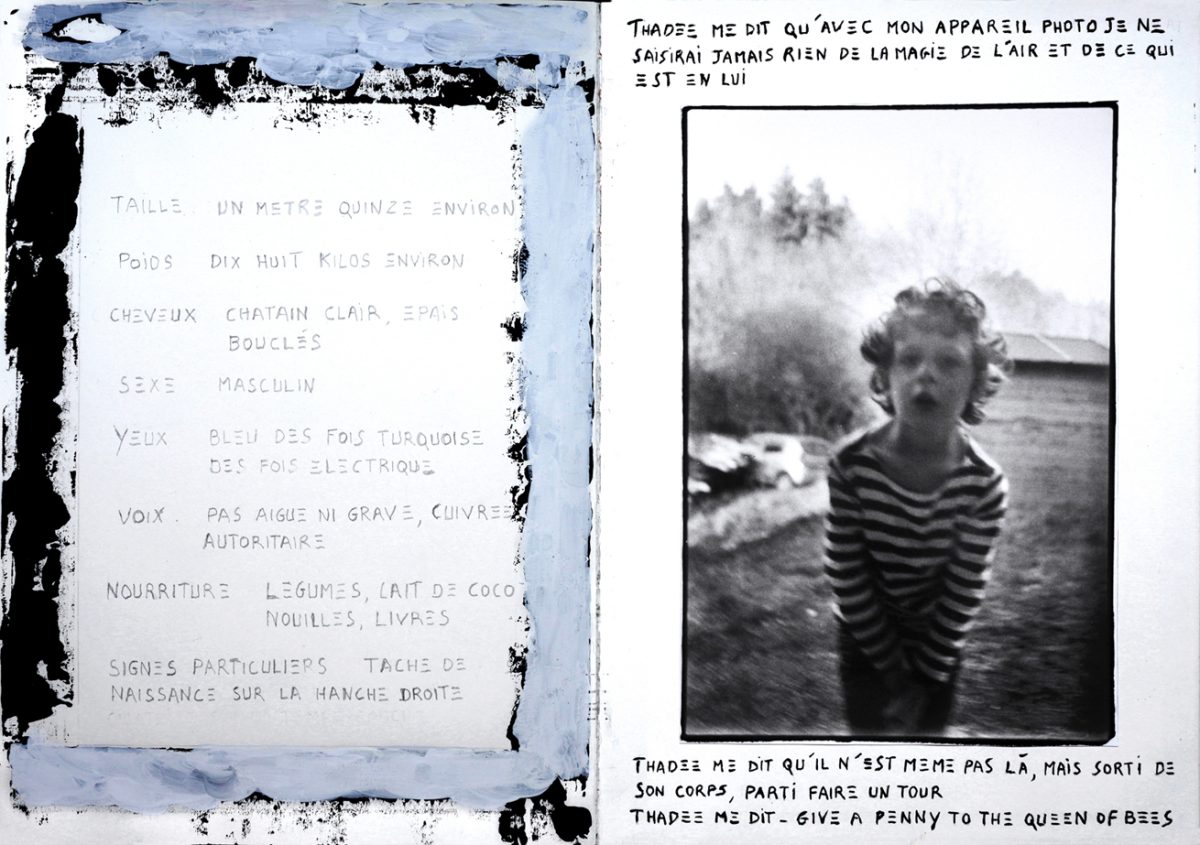 TAILLE UN METRE QUINZE ENVIRON
POIDS DIX HUIT KILOS ENVIRON
CHEVEUX CHATAIN CLAIR, EPAIS
BOUCLÉS
SEXE MASCULIN
YEUX BLEU DES FOIS TURQUOISE
DES FOIS ELECTRIQUE
VOIX. PAS AIGUE NI GRAVE, CUIVREE
AUTORITAIRE
NOURRITURE LEGUMES, LAIT DE COCO
NOUILLES, LIVRES
SIGNES PARTICULIERS TACHE DE
NAISSANCE SUR LA HANCHE DROITE
THADEE ME DIT QU'AVEC MON APPAREIL PHOTO JE NE
SAISIRAI JAMAIS RIEN DE LA MAGIE DE L'AIR ET DE CE QUI
EST EN LUI
THADEE ME DIT QU'IL N'EST MEME PAS LÀ, MAIS SORTI DE
SON CORPS, PARTI FAIRE UN TOUR
THADEE ME DIT - GIVE A PENNY TO THE QUEEN OF BEES